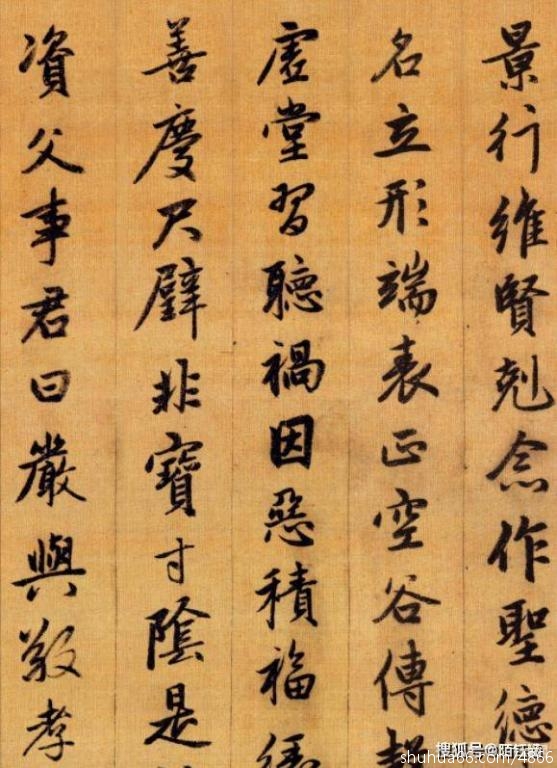 景行維賢剋念作聖德
名立形端表正空谷傳
虛堂習聽禍因惡積福緣
善慶尺璧非寶寸陰是
資父事君曰嚴與敬孝
shuhua66.com/4866